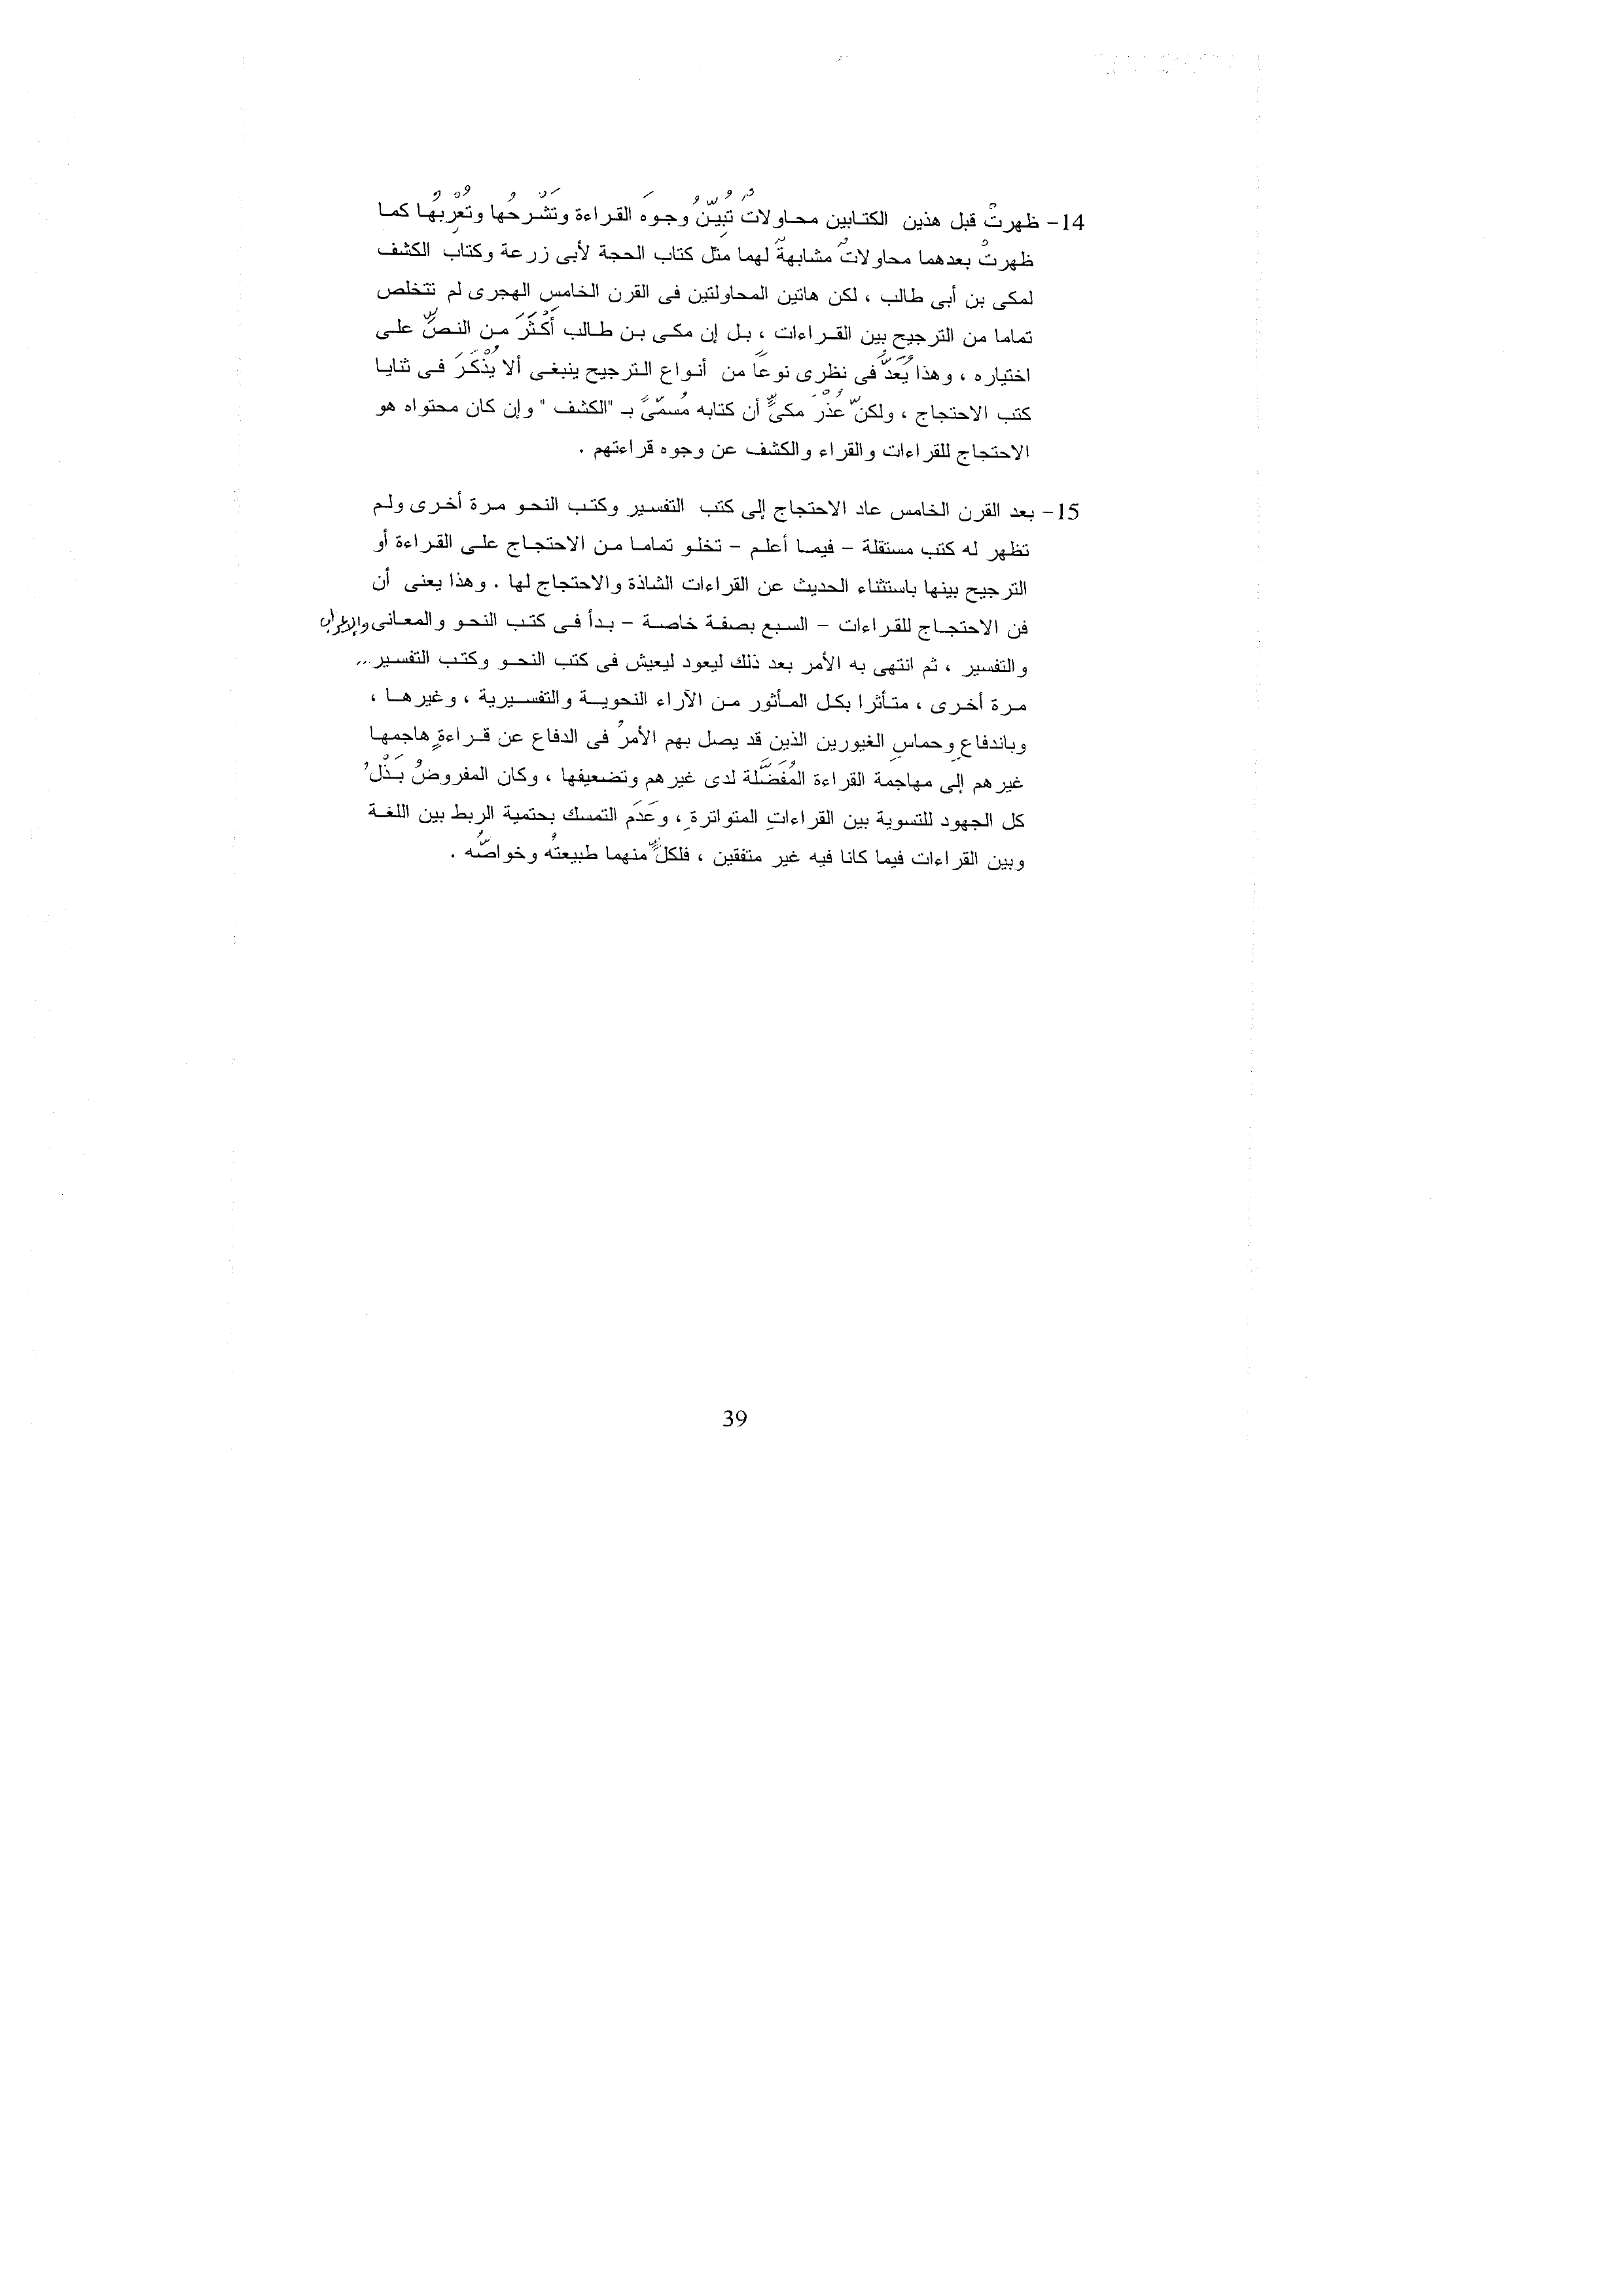 14- ظهرتْ قبل هذين الكتابين محاولاتٌ تُبيِّنُ وجوهَ القراءة وتَشْرحُها وتُعْرِبُها كما
ظهرتْ بعدهما محاولاتٌ مشابهةٌ لهما مثل كتاب الحجة لأبى زرعة وكتاب الكشف
لمكى بن أبى طالب ، لكن هاتين المحاولتين فى القرن الخامسِ الهجرى لم تتخلص
تماما من الترجيح بين القراءات ، بل إن مكى بن طالب أَكْثَرَ من النصِّ على
اختياره ، وهذا يُعَدُّ فى نظرى نوعاً من أنواع الترجيح ينبغى ألا يُذْكَرَ فى ثنايا
كتب الاحتجاج ، ولكنّ عُذْرَ مكىٍّ أن كتابه مُسمّىً بـ "الكشف " وإن كان محتواه هو
الاحتجاج للقراءات والقراء والكشف عن وجوه قراءتهم .
15- بعد القرن الخامس عاد الاحتجاج إلى كتب التفسير وكتب النحو مرة أخرى ولم
تظهر له كتب مستقلة – فيما أعلم – تخلو تماما من الاحتجاج على القراءة أو
الترجيح بينها باستثناء الحديث عن القراءات الشاذة والاحتجاج لها . وهذا يعنى أن
فن الاحتجاج للقراءات – السبع بصفة خاصة – بدأ فى كتب النحو والمعانى والإعراب
والتفسير ، ثم انتهى به الأمر بعد ذلك ليعود ليعيش فى كتب النحو وكتب التفسير ..
مرة أخرى ، متأثرا بكل المأثور من الآراء النحوية والتفسيرية ، وغيرها ،
وباندفاعٍ وحماسِ الغيورين الذين قد يصل بهم الأمرُ فى الدفاع عن قراءةٍ هاجمها
غيرهم إلى مهاجمة القراءة المُفَضَّلة لدى غيرهم وتضعيفها ، وكان المفروضُ بَذْلُ
كل الجهود للتسوية بين القراءاتِ المتواترةِ ، وعَدَم التمسك بحتمية الربط بين اللغة
وبين القراءات فيما كانا فيه غير متفقين ، فلكلٍّ منهما طبيعتُه وخواصُّه .
39